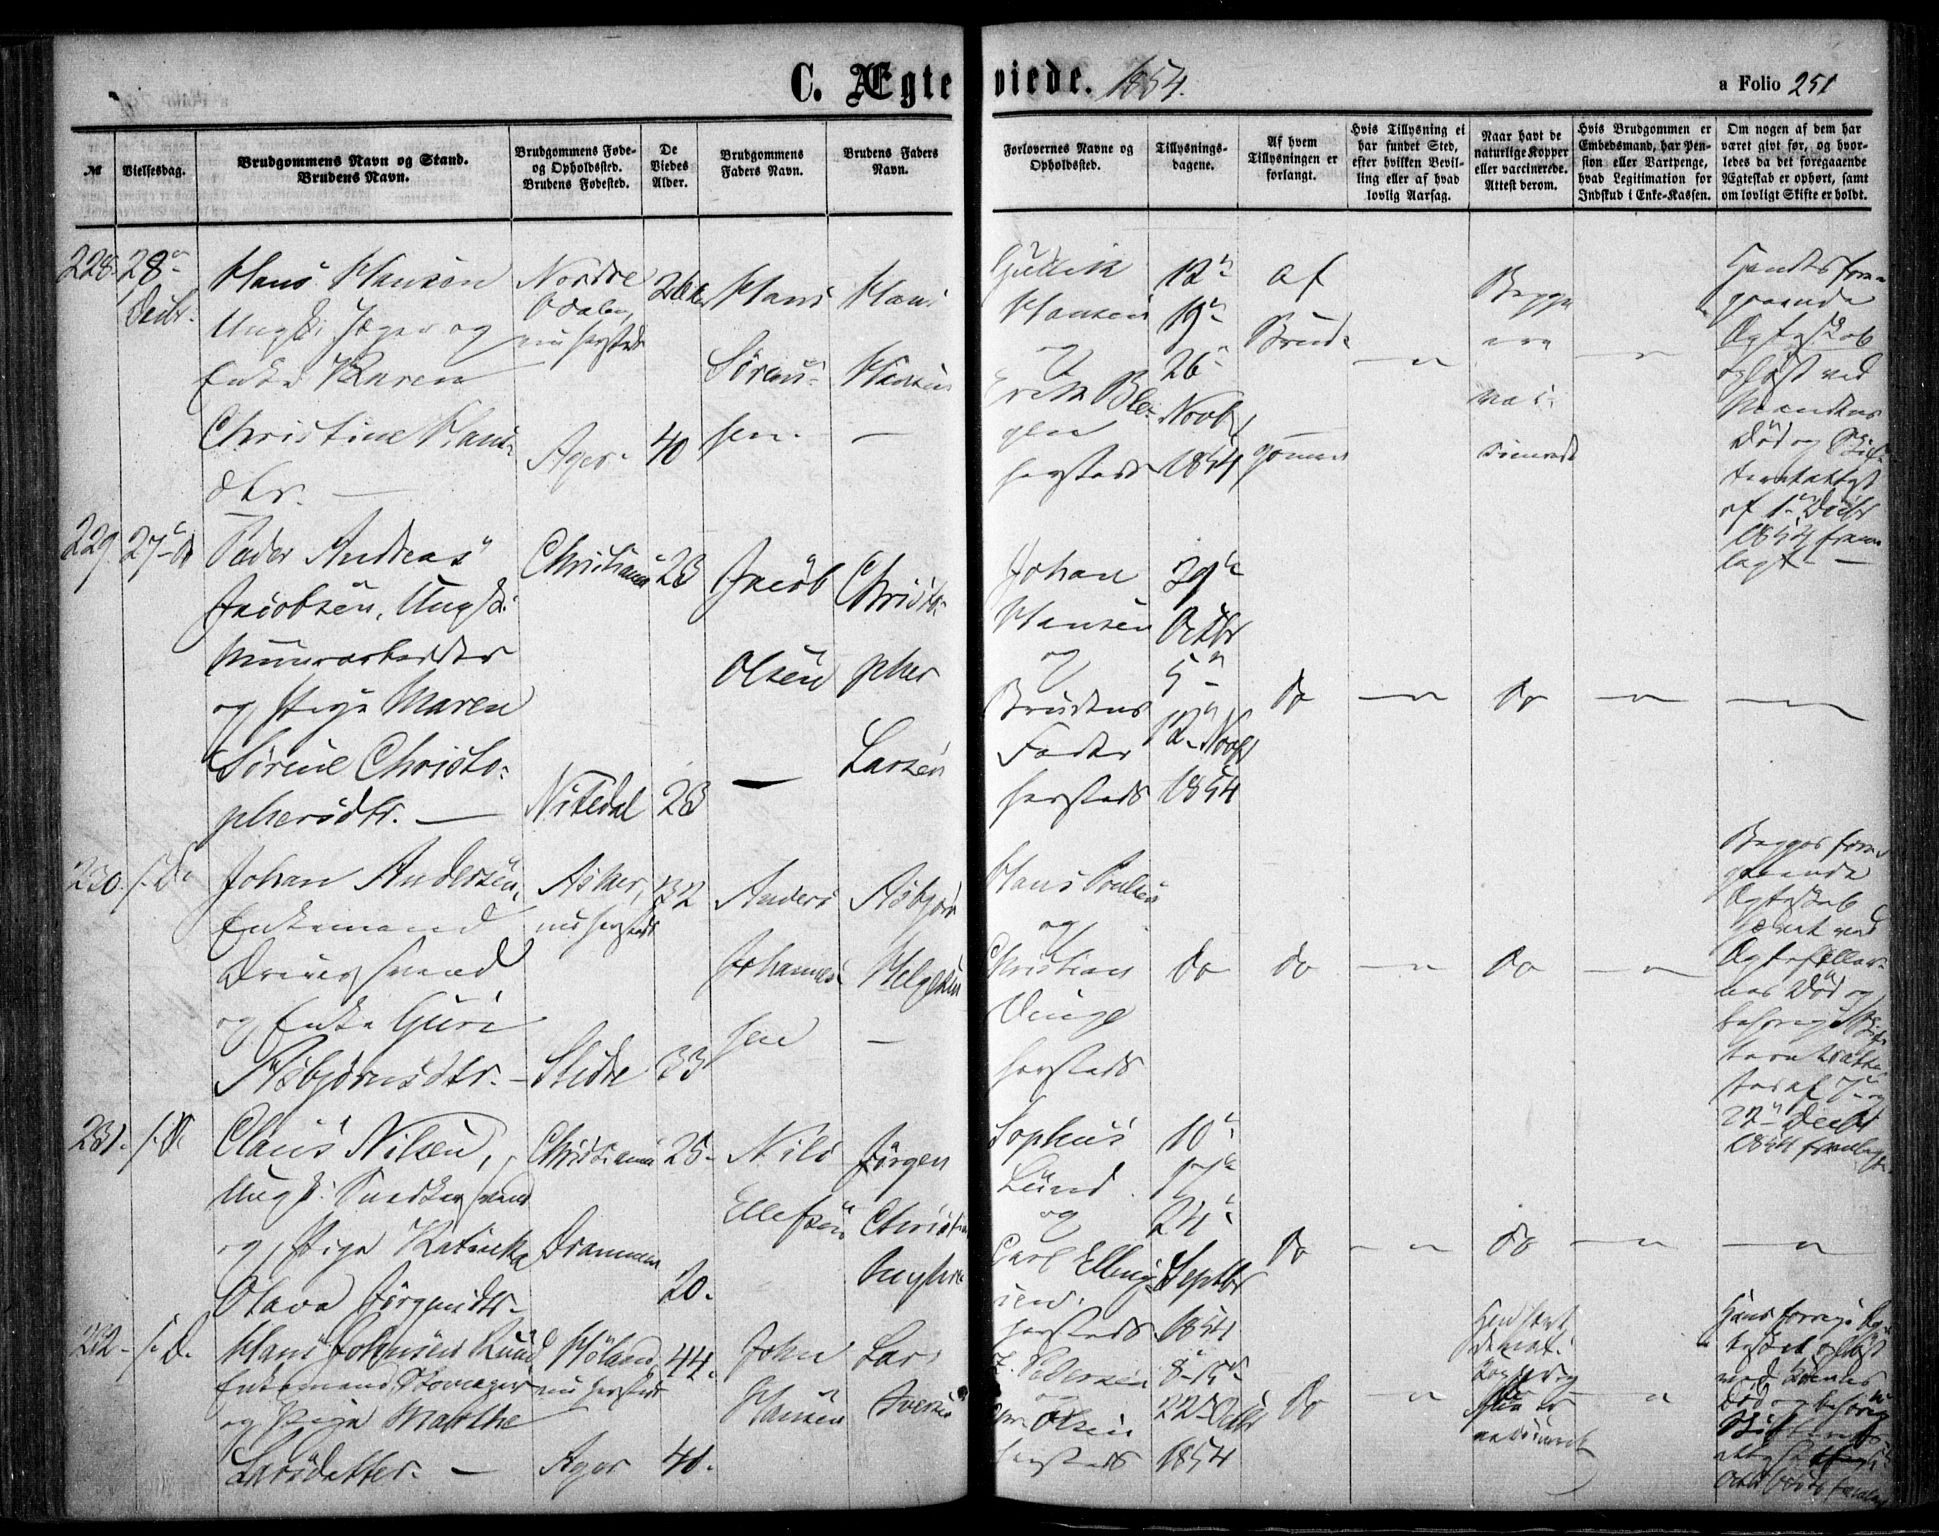 C. Ægteviede. 1854.
a Folio 251
№
Vielsesdag.
Brudgommens Navn og Stand.
Brudens Navn.
Brudgommens Føde-
og Opholdssted.
Brudens Fødested.
De
Viedes
Alder.
Brudgommens
Faders Navn.
Brudens Faders
Navn.
Forlovernes Navne og
Opholdssted.
Tillysnings-
dagene.
Af hvem
Tillysningen er
forlangt.
Hvis Tillysning ei
har fundet Sted,
efter hvilken Bevil-
ling eller af hvad
lovlig Aarsag.
Naar havt de
naturlige Kopper
eller vaccinerede.
Attest derom.
Hvis Brudgommen er
Embedsmand, har Pen-
sion eller Vartpenge,
hvad Legitimation for
Indskud i Enke-Kassen.
Om nogen af dem har
været givt før, og hvor-
ledes da det foregaaende
Ægteskab er ophørt, samt
om lovligt Skifte er holdt.
228.
28
Decbr.
Hans Hansen
Ungk: Jæger og
Enke Karen
Christine Hans-
dtr. —
Nordre
Odalen,
nu hersteds
Ager.
26
40
Hans
Sören-
sen.
Hans
Hansen
—
Gullik
Hansen
og
Erik
hersteds
12
19
26
Novbr
1854
af
Brud-
gommen
— " —
Begge
ere
vac-
cinerede
— " —
Hendes fore-
gaaende
Ægteskab
opløst ved
Mandens
Død og Skif-
teretsattest
af 1 Decbr
1854 frem-
lagt —
229.
27 D
Peder Andreas
Jacobsen, Ungk:
Muurarbeider
og Pige Maren
Sörine Christo-
phersdtr. —
Christiania
Nitedal
23
23
Jacob
Olsen
—
Christo-
pher
Larsen
Johan
Hansen
og
Brudens
Fader
hersteds
29
Octbr
5
12 Novbr
1854
do
— " —
do
— " —
— " —
230.
s. D.
Johan Andersen,
Enkemand
og Enke Guri
Asbjörnsdtr. —
Asker,
nu hersteds
Slidre
32
33
Anders
Johannes-
sen
Asbjörn
Helgesen
—
Hans Poulsen
og
Christian
hersteds
do
do
— " —
do
— " —
Begges fore-
gaaende
Ægteskab
hævet ved
Ægtefeller-
nes Død og
behörig Skif-
teretsattes-
ter af 7 og
22 Decbr
1854 fremlagt
231.
s. D.
Claus Nilsen,
Ungk: Snedkersvend
og Pige Katinka
Olava Jörgensdtr.
Christiania
Drammen
25
20.
Nils
Ellefsen
Jörgen
Sophus
Lund
og
Carl Elling-
sen.
hersteds
10
17
24
Septbr
1854
do
— " —
do
— " —
— " —
232
s. D.
Hans Johnsen Ruud
Enkemand, Skomager
og Pige Marthe
Larsdatter. —
Höland,
nu hersteds
Ager
44.
40.
John
Hansen
Lars
Iversen
Pedersen
og
Olsen
hersteds
8 15
22 Octbr
1854
do
— " —
Han havt
de nat:
Kopper
Hun er
vaccineret
"
Hans forrige Æg-
teskab oplöst
ved Konens
Död og behörig